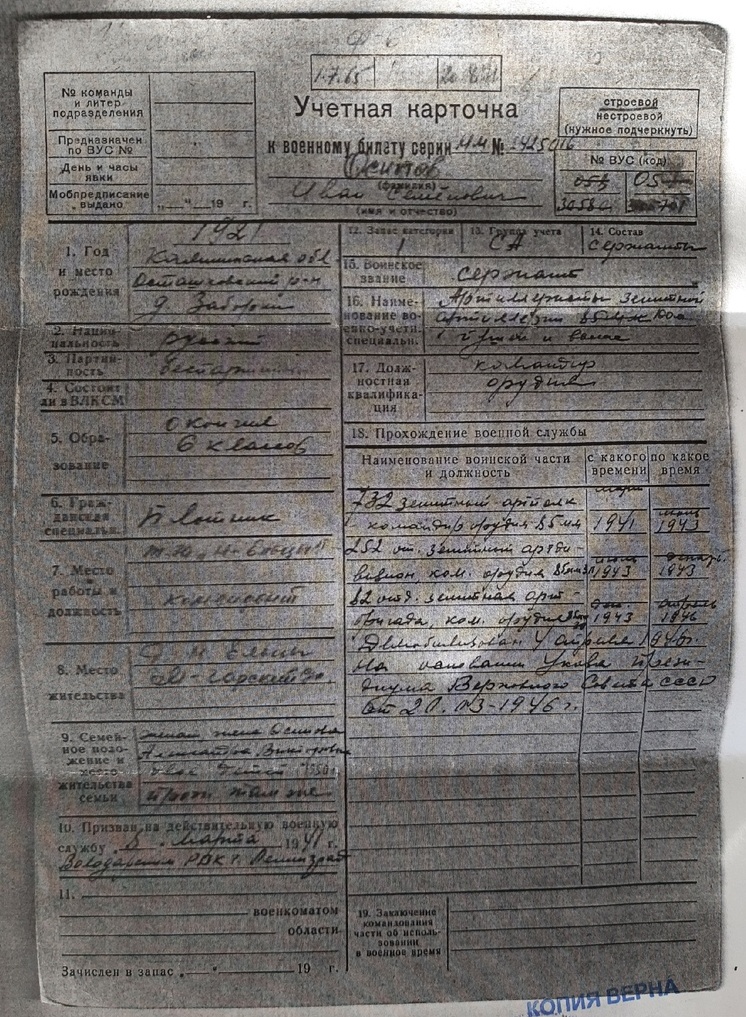 1.7.65
Учетная карточка
к военному билету серии № 
Осипов
(фамилия)
Иван Семёнович
(имя и отчество)
№ команды
и литер
подразделения
Предназначен
по ВУС №
День и часы
явки
Мобпредписание
выдано „ “ 19 г.
строевой
нестроевой
(нужное подчеркнуть)
№ ВУС (код)
1. Год
и место
рождения
1921
Калининская обл
Осташковский р-н
д.
2. Нацио-
нальность
русский
3. Партий-
ность
беспартийный
4. Состоит
ли в ВЛКСМ
5. Обра-
зование
окончил
6 классов
6. Граж-
данская
специальн.
Плотник
7. Место
работы и
должность
комендант
8. Место
жительства
9. Семей-
ное поло-
жение и
место-
жительства
семьи
женат жена Осипова
Александра Викторовна
двое детей
там же
10. Призван на действительную военную
службу „8 “ марта 1941 г.
Володарским РВК г. Ленинград
11.
военкоматом
области
Зачислен в запас „ “ 19 г.
12. Запас категории
1
13. Группа учета
СА
14. Состав
сержанты
15. Воинское
звание
сержант
16. Наиме-
нование во-
енно-учетн.
специальн.
Артиллеристы зенитной
артиллерии 85 мм 100
и выше
17. Долж-
ностная
квалифика-
ция
командир
орудия
18. Прохождение военной службы
Наименование воинской части
и должность
с какого
времени
по какое
время
732 зенитный артполк
командир орудия 85 мм
март 1941
июнь 1943
252 от. зенитный артди-
визион, ком. орудия 85 мм
июнь 1943
декабрь 1943
82 отд. зенитная арт-
бригада, ком. орудия
дек. 1943
апрель 1946
Демобилизован 4 апреля 1946 г.
на основании Указа Прези-
диума Верховного Совета СССР
от 20.03-1946 г.
19. Заключение
командования
части об исполь-
зовании
в военное время
КОПИЯ ВЕРНА